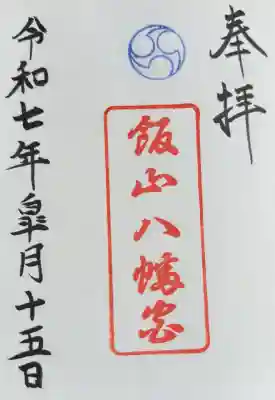 奉拝
飯山八幡宮
令和七年皐月十五日